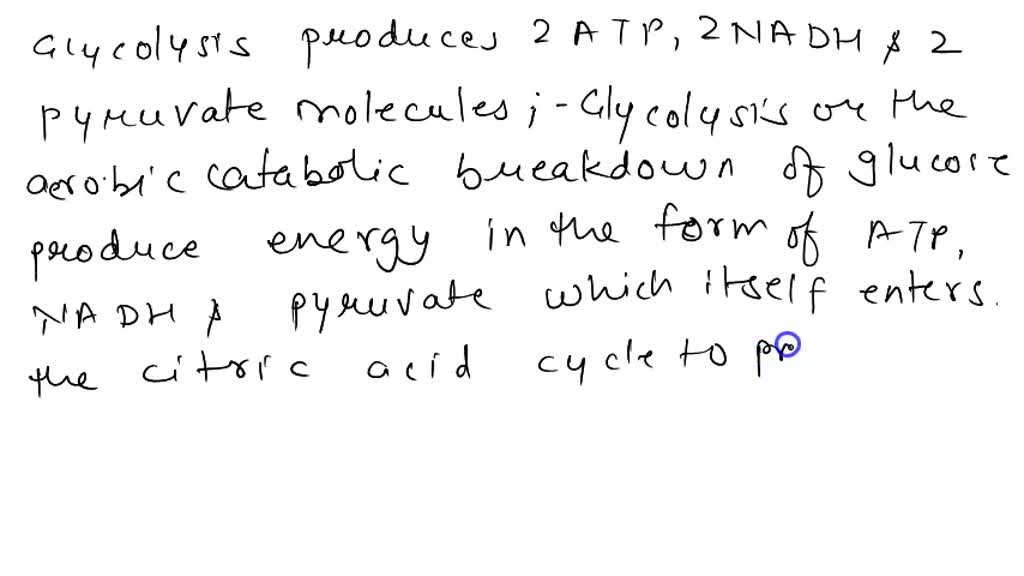 Glycolysis produces 2 ATP, 2 NADH & 2
pyruvate molecules; - Glycolysis or the
aerobic catabolic breakdown of glucose
produce energy in the form of ATP,
NADH & pyruvate which itself enters.
the citric acid cycle to pr